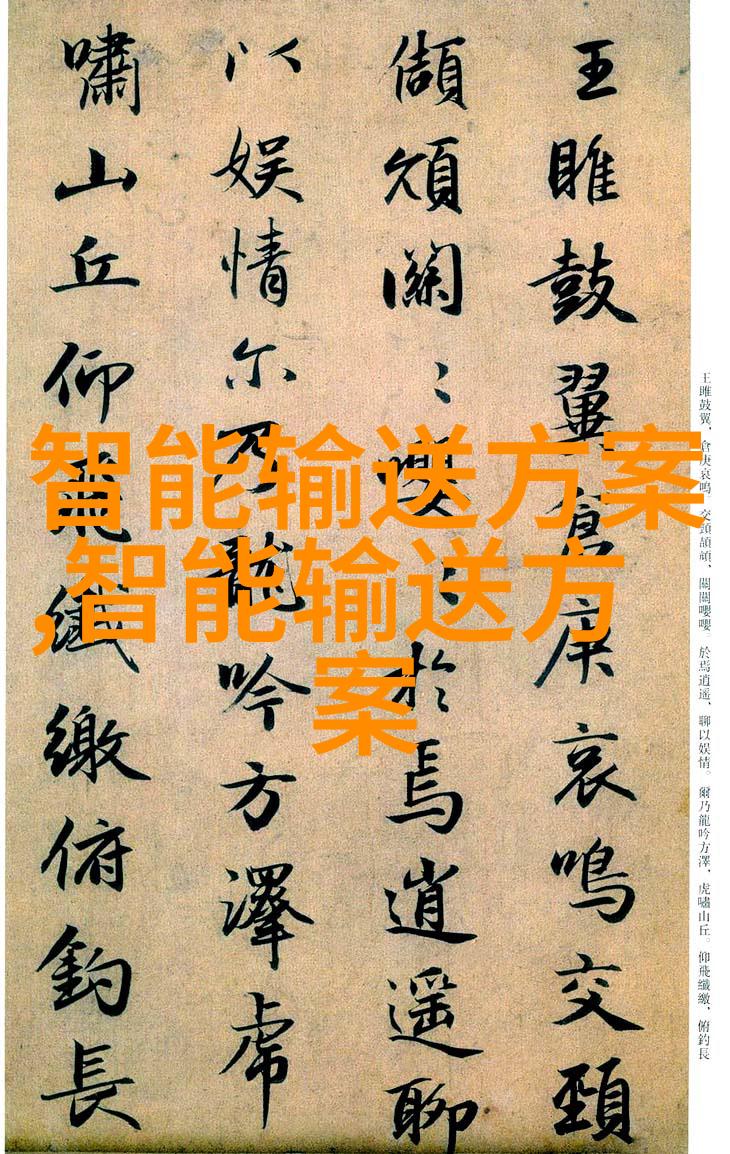 王雎鼓翼倉庚哀鳴交頸
頡頏關〻嚶〻於焉逍遥聊
以娱情尔乃龍吟方澤虎
嘯山丘仰飛纖繳俯釣長
王雎鼓翼、倉庚哀鳴、交頸頡頏、關關嚶嚶。於焉逍遥、聊以娱情。爾乃龍吟方澤、虎嘯山丘。仰飛纖繳、俯釣長
智能输送方案
,智能输送方
案